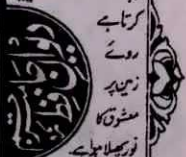 کرتا ہے
روئے
زمین پر
معشوق کا
نور پھیلا ہوا ہے
دیوان حافظ